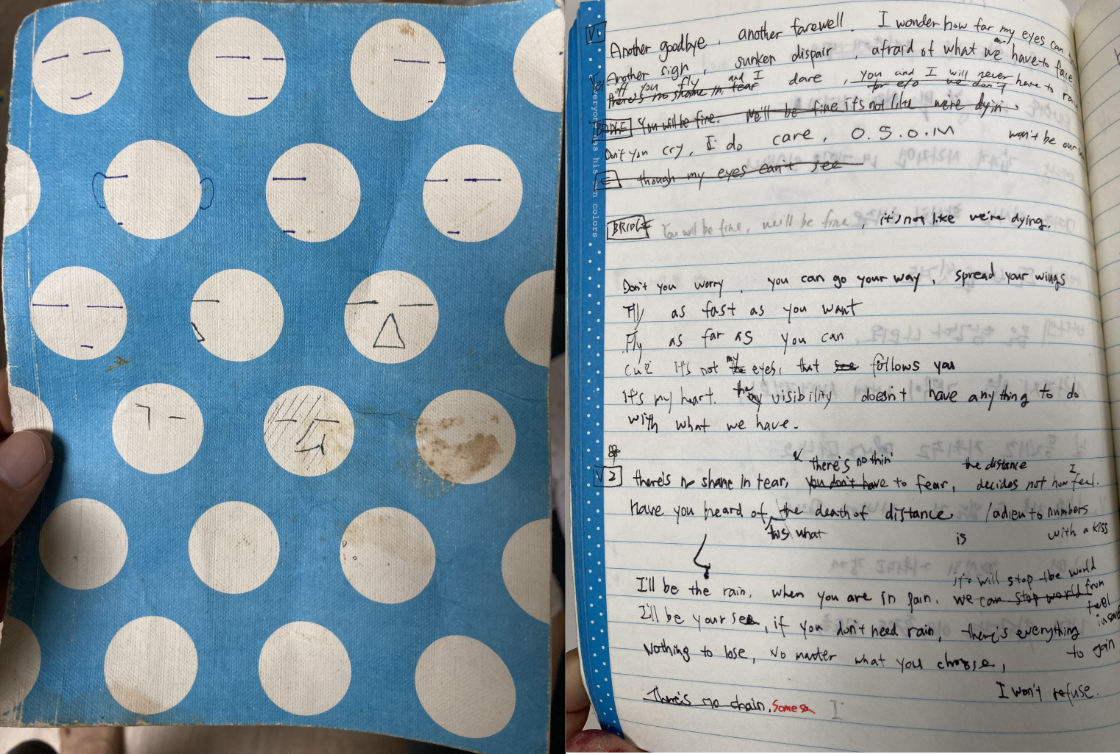 has his own colors
V1
Another goodbye, another farewell I wonder how far my eyes can
Another sigh, sunken dispair, afraid of what we have to face
off you fly and I dare, you and I will never have to
there's no shame in tear we don't
BRIDGE You will be fine. We'll be fine it's not like we're dyin'.
Don't you cry, I do care, O.S.O.M won't be our
though my eyes can't see
BRIDGE You will be fine, we'll be fine, it's not like we're dying.
Don't you worry, you can go your way, spread your wings
Fly as fast as you want
Fly as far as you can
cuz it's not the my eyes, that see follows you
it's my heart. the visibility doesn't have anything to do
with what we have.
there's nothin' the distance I
V2 there's no shame in tear, you don't have to fear, decides not how feel.
Have you heard of the death of distance /adieu to numbers
this what is with a kiss
it will stop the world
I'll be the rain, when you are in pain. we can stop world from
I'll be your see, if you don't need rain, there's everything
Nothing to lose, No matter what you choose, to gain
I won't refuse.
There's no chain,